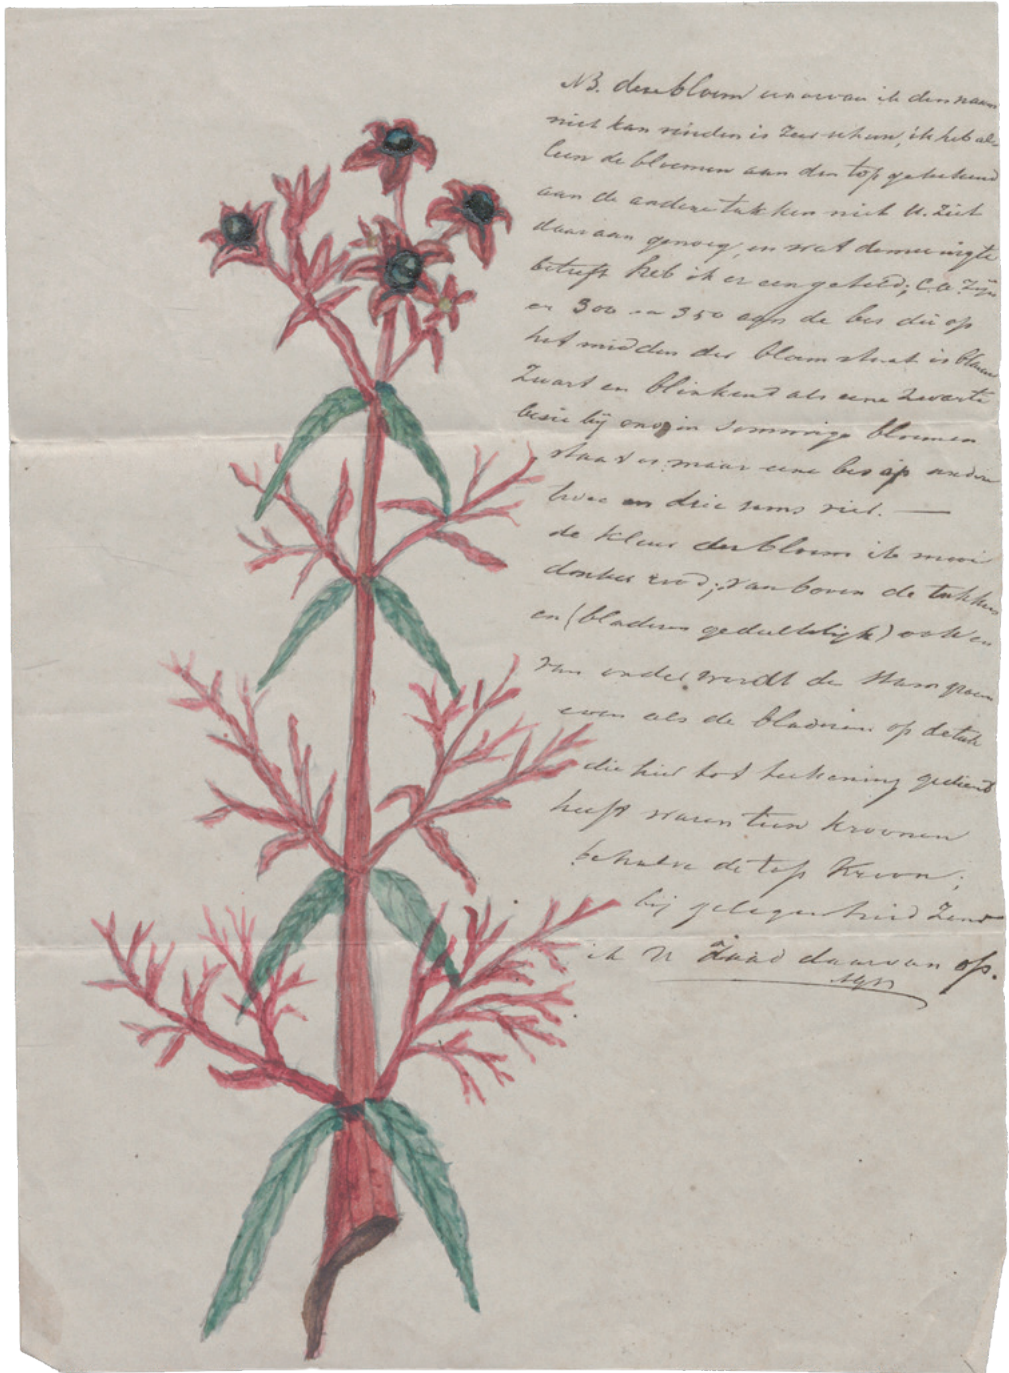 NB. deze bloem waarvan ik den naam
niet kan vinden is zeer schoon, ik heb al-
leen de bloemen aan den top getekend
aan de andere takken niet U. ziet
daaraan genoeg, en wat de menigte
betreft heb ik er een geteld; C.a zijn
er 300 a 350 aan de bes die op
het midden der bloem staat is blauw
zwart en blinkend als eene zwarte
besie bij ons, in sommige bloemen
staat er maar eene bes op andere
twee en drie soms vier. —
de kleur der bloem is mooi
donker rood; van boven de takken
en (bladeren gedeeltelijk) ook en
van onder wordt de stam groen
even als de bladeren op de tak
die hier tot teekening gediend
heeft waren tien kroonen
behalve de top Kroon;
bij gelegenheid zend
ik U zaad daarvan op.